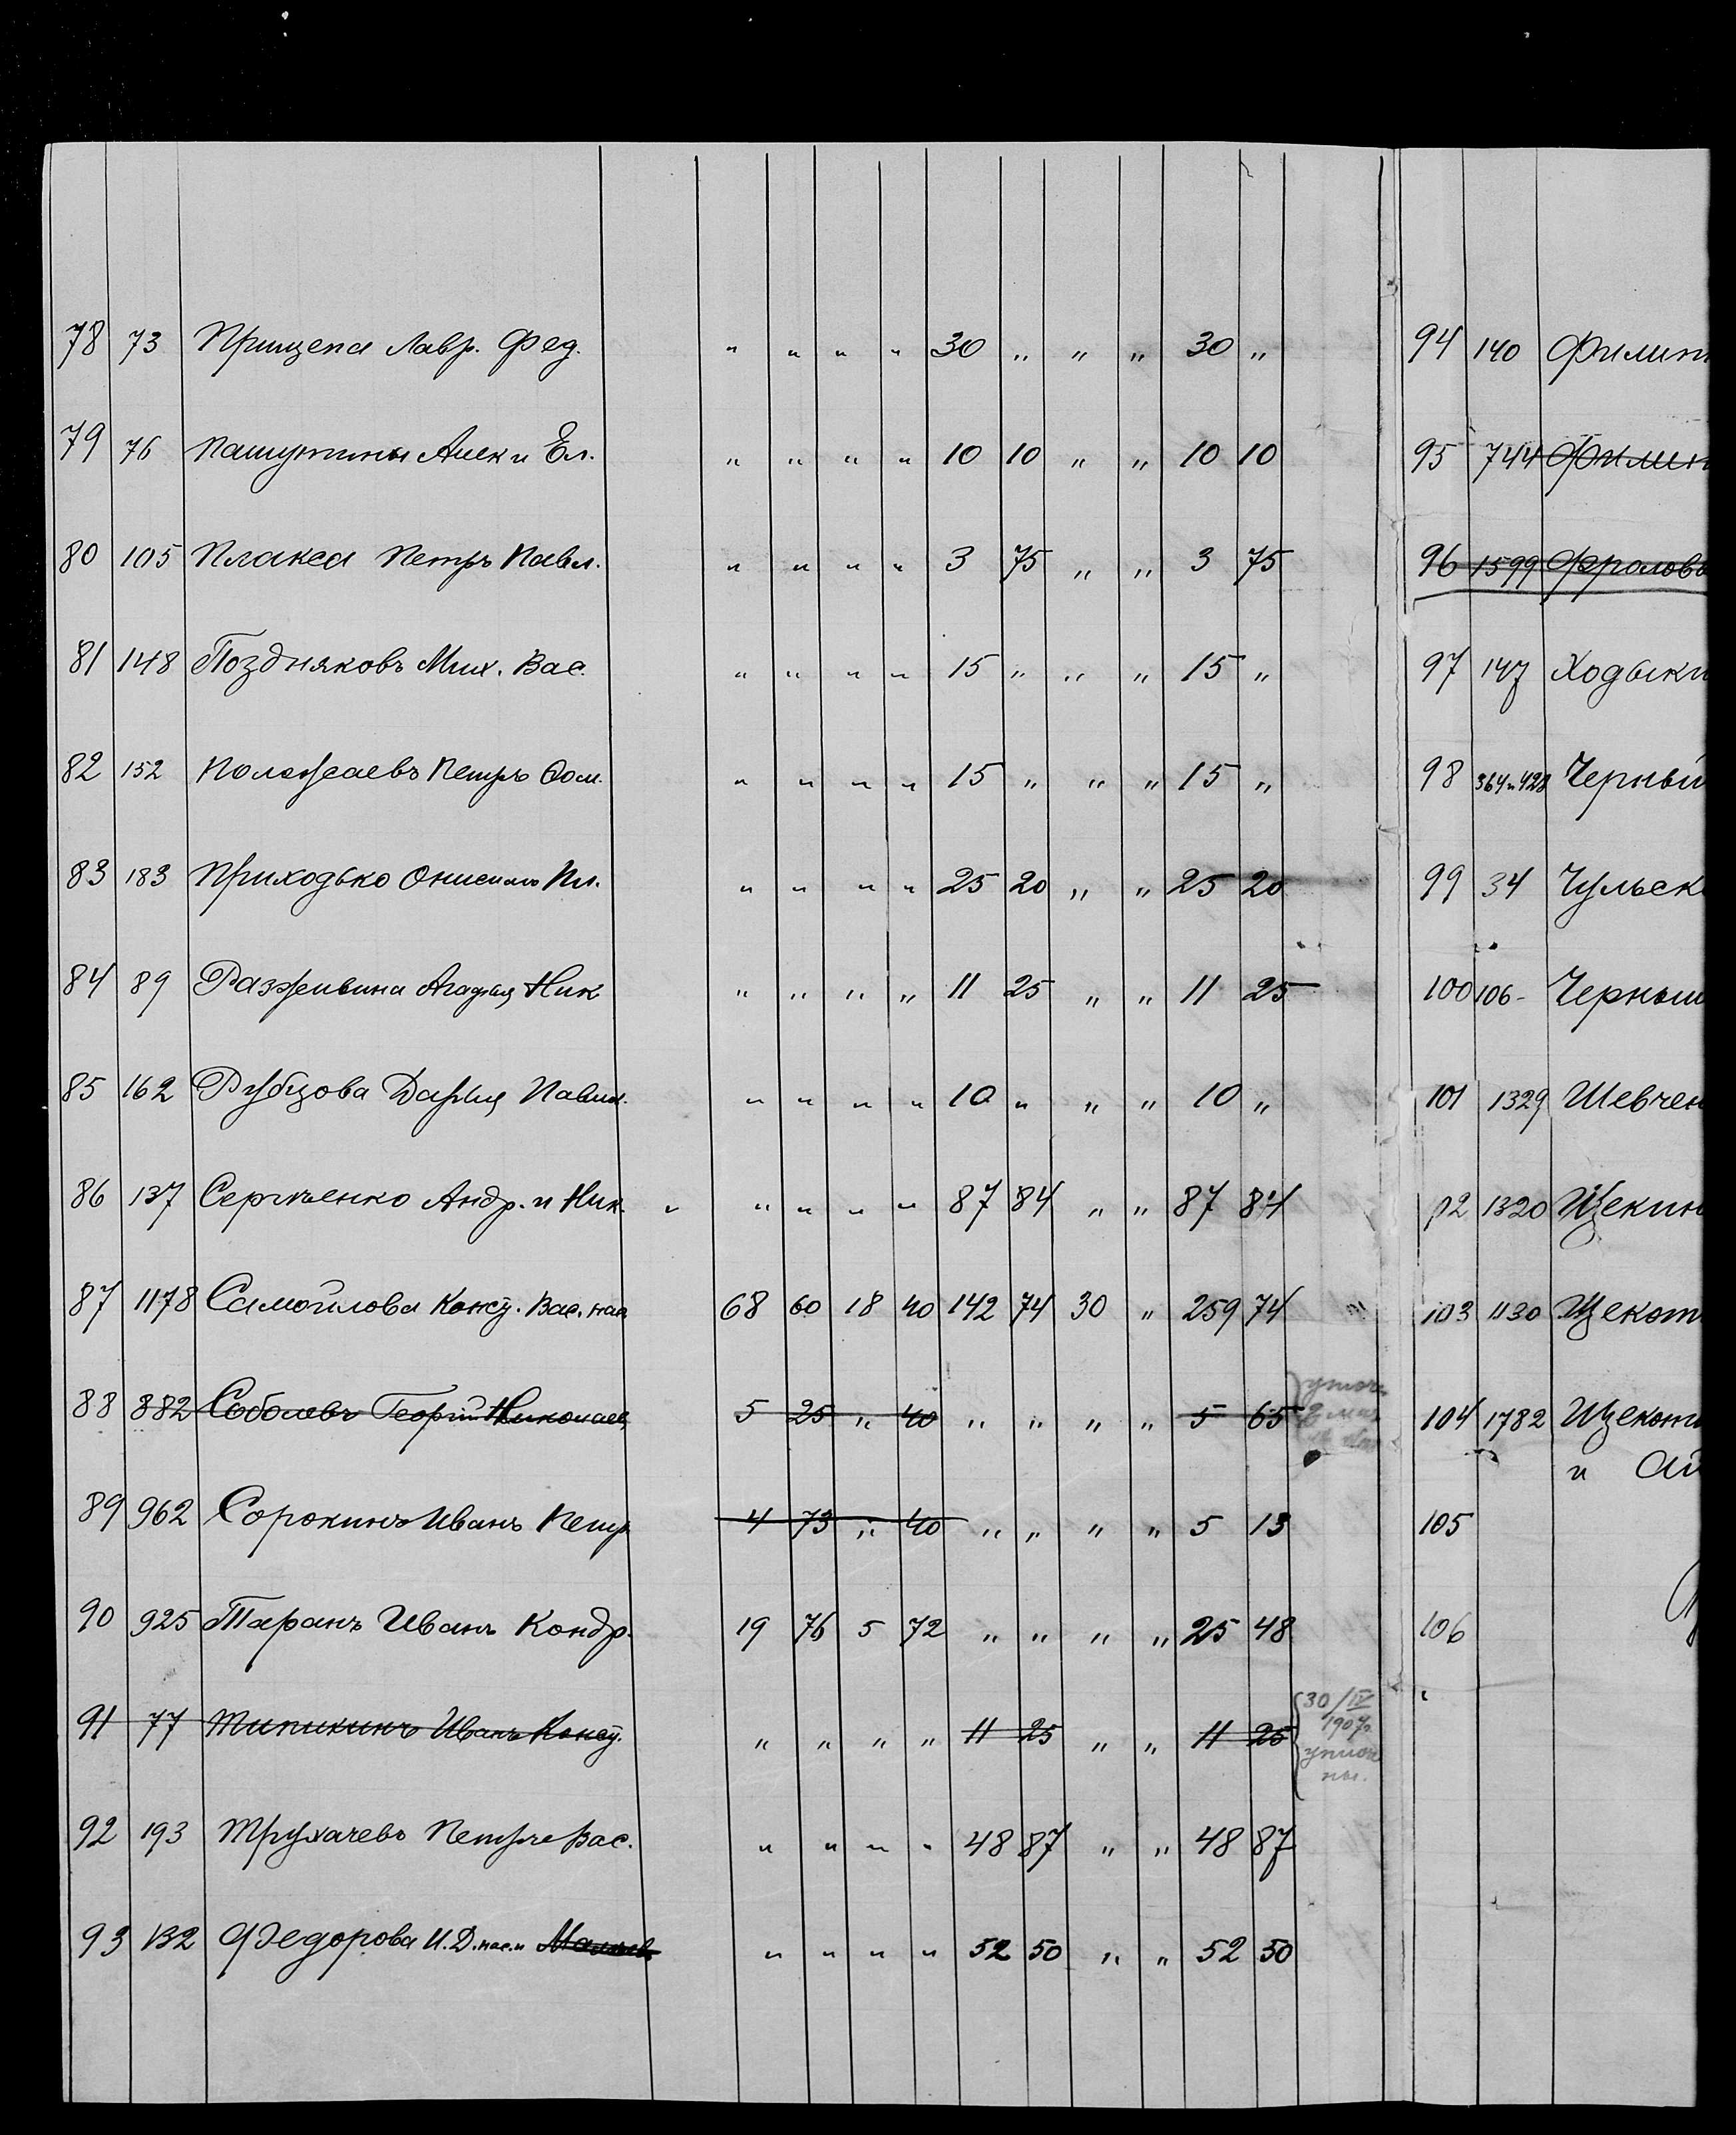 78 73 Прищепа Лавр. Фед. " " " " 30 " " " 30 "
79 76 Пашутины Алек и Ел. " " " " 10 10 " " 10 10
80 105 Плакса Петръ Павл. " " " " 3 75 " " 3 75
81 148 Поздняковъ Мих. Вас. " " " " 15 " " " 15 "
82 152 Полежаевъ Петръ " " " " 15 " " " 15 "
83 183 Приходько Онисимъ " " " " 25 20 " " 25 20
84 89 Разживина Агафья Ник " " " " 11 25 " " 11 25
85 162 Рубцова Дарья Павл. " " " " 10 " " " 10 "
86 137 Сергиенко Андр. и Ник. " " " " " 87 84 " " 87 84
87 1178 Самойлова Конст. Вас. нас. 68 60 18 40 142 74 30 " 259 74 "
88 882 Соболевъ Георгій Николаев. 5 25 " 40 " " " " 5 65
89 962 Сорокинъ Иванъ Петр 4 73 " 40 " " " " 5 13
90 925 Таранъ Иванъ Кондр. 19 76 5 72 " " " " 25 48
91 77 Типикинъ Иванъ Конст. " " " " 11 25 " " 11 25
30/IV
1907г.
92 193 Трухачевъ Петръ Вас. " " " " 48 87 " " 48 87
93 132 Федорова И.Д. нас. и " " " " 52 50 " " 52 50
94 140 Филип
95 744 Филип
96 1599 Фролов
97 147 Ходыки
98 364 и 428 Черный
99 34 Чульск
100 106- Черныш
101 1329 Шевчен
102 1320 Щекин
103 1130 Щекот
104 1782 Щекот
и
105
106